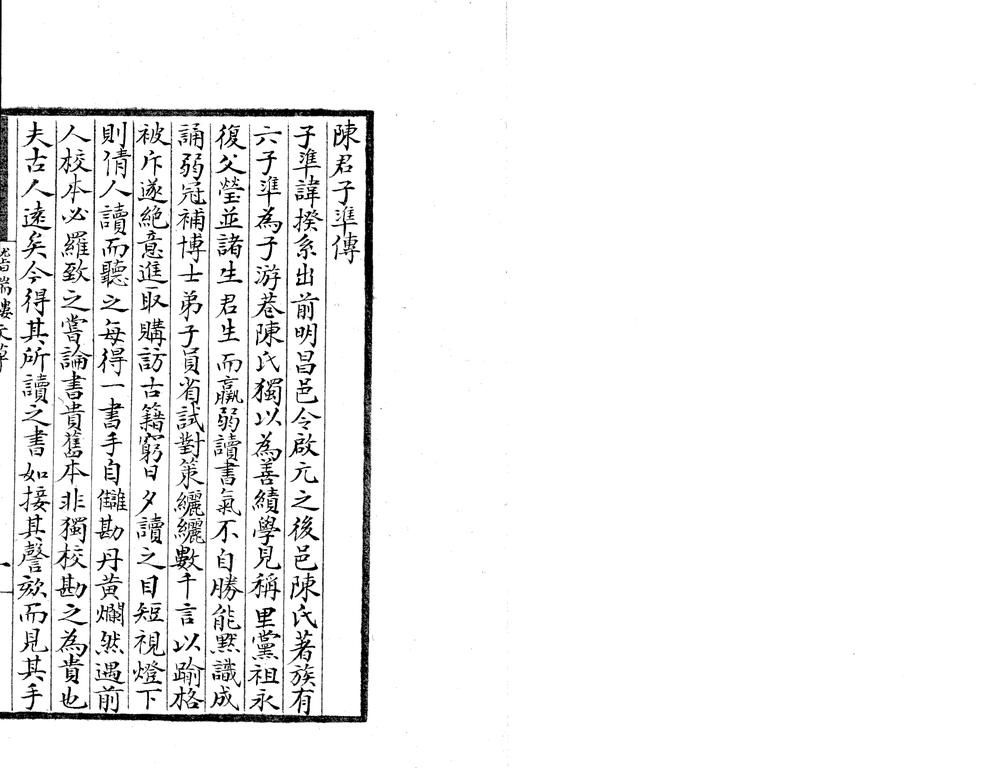 陳君子準傳
子準諱揆系出前明昌邑令啟元之後邑陳氏著族有
六子準為子游巷陳氏獨以為善績學見稱里黨祖永
復父瑩並諸生君生而羸弱讀書氣不自勝能默識成
誦弱冠補博士弟子員省試對策纚纚數千言以踰格
被斥遂絶意進取購訪古籍窮日夕讀之目短視燈下
則倩人讀而聽之每得一書手自讎勘丹黃爛然遇前
人校本必羅致之嘗論書貴舊本非獨校勘之為貴也
夫古人遠矣今得其所讀之書如接其謦欬而見其手
稽瑞樓文草
一